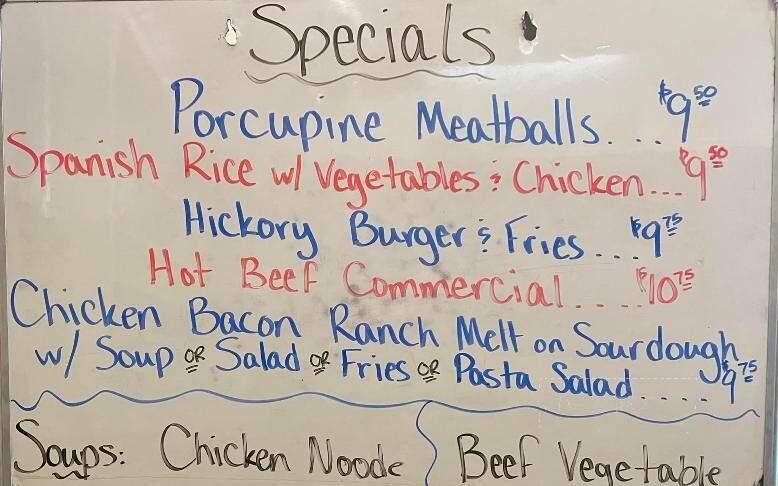 Specials
Porcupine Meatballs....$9.50
Spanish Rice w/ Vegetables & Chicken...$9.50
Hickory Burger & Fries...$9.75
Hot Beef Commercial....$10.75
Chicken Bacon Ranch Melt on Sourdough
w/ Soup or Salad or Fries or Pasta Salad.....$9.75
Soups: Chicken Noode Beef Vegetable